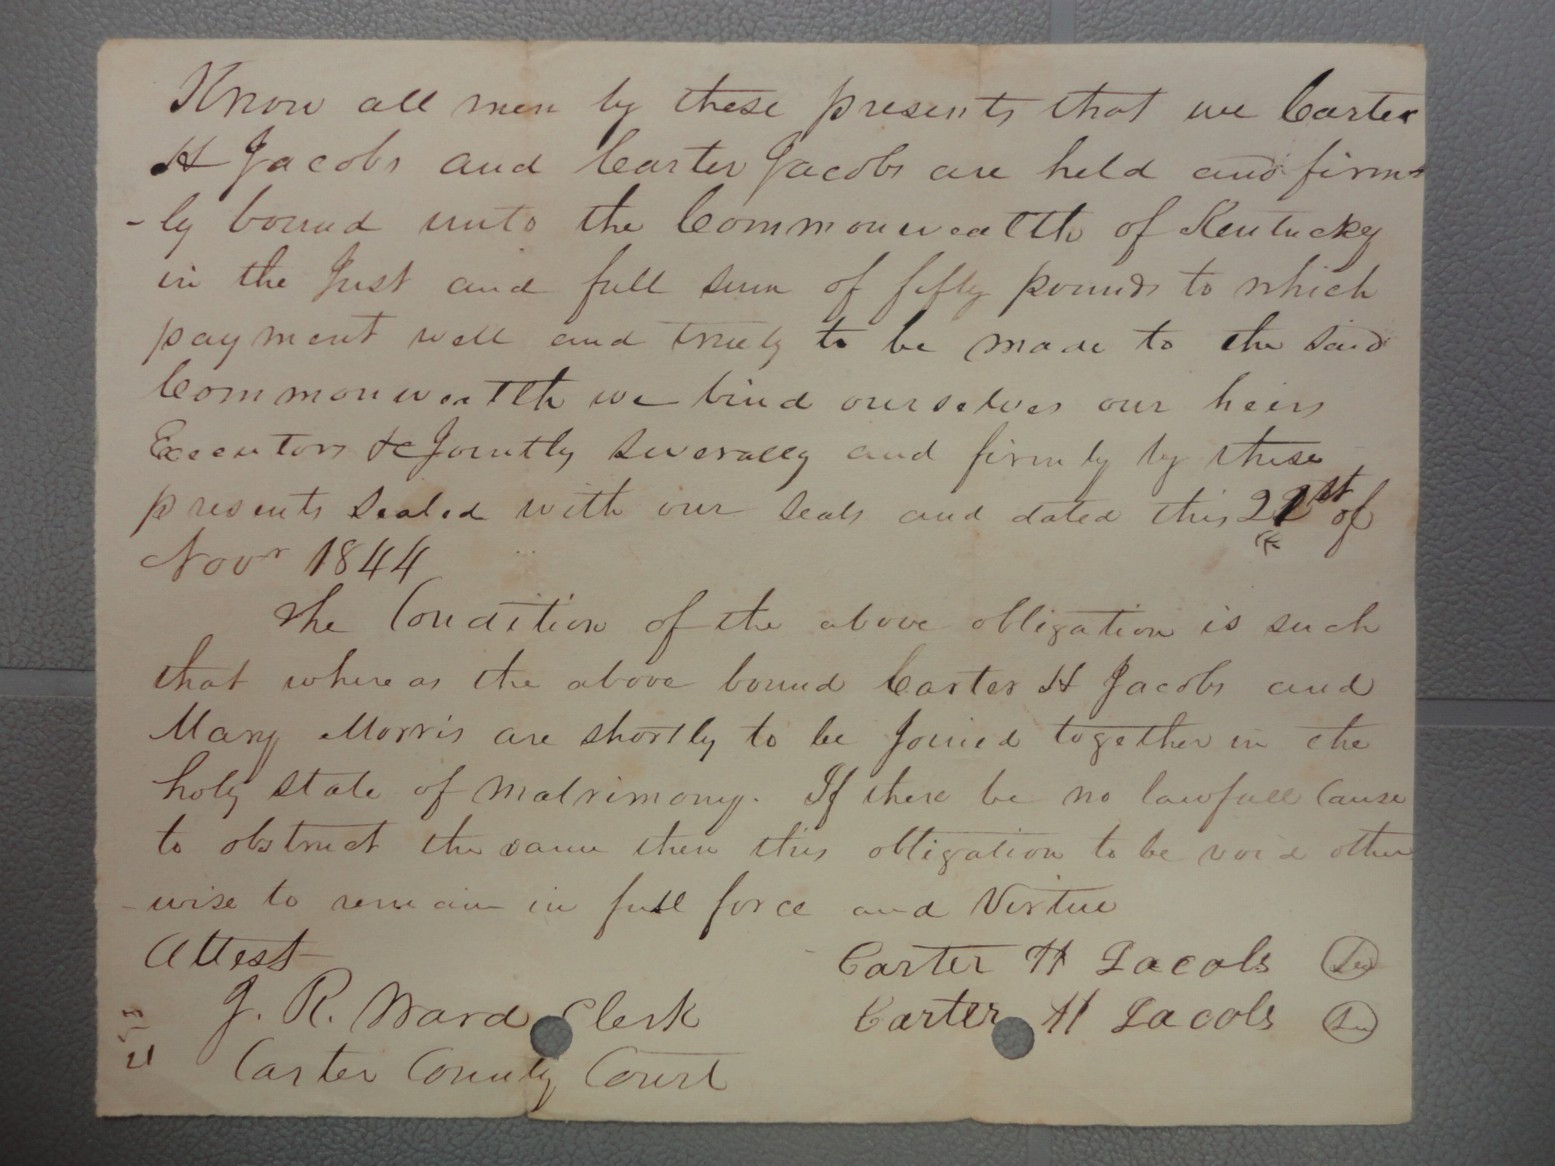 Know all men by these presents that we Carter
H Jacobs and Carter Jacobs are held and firm
-ly bound unto the Commonwealth of Kentucky
in the Just and full sum of fifty pounds to which
payment well and truly to be made to the said
Commonwealth we bind ourselves our heirs
Executors &c Jointly severally and firmly by these
presents sealed with our seals and dated this 21st of
Novr 1844
The Condition of the above obligation is such
that whereas the above bound Carter H Jacobs and
Mary Morris are shortly to be Joined together in the
holy state of matrimony. If there be no lawfull Cause
to obstruct the same then this obligation to be void other
-wise to remain in full force and Virtue
Attest
Carter H Jacobs
J. R. Ward Clerk
Carter H Jacobs
Carter County Court